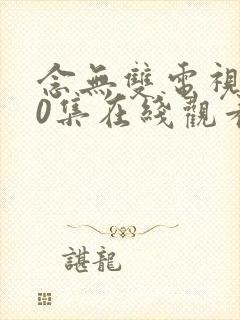 念無雙電視
0集在綫觀看
諶龍